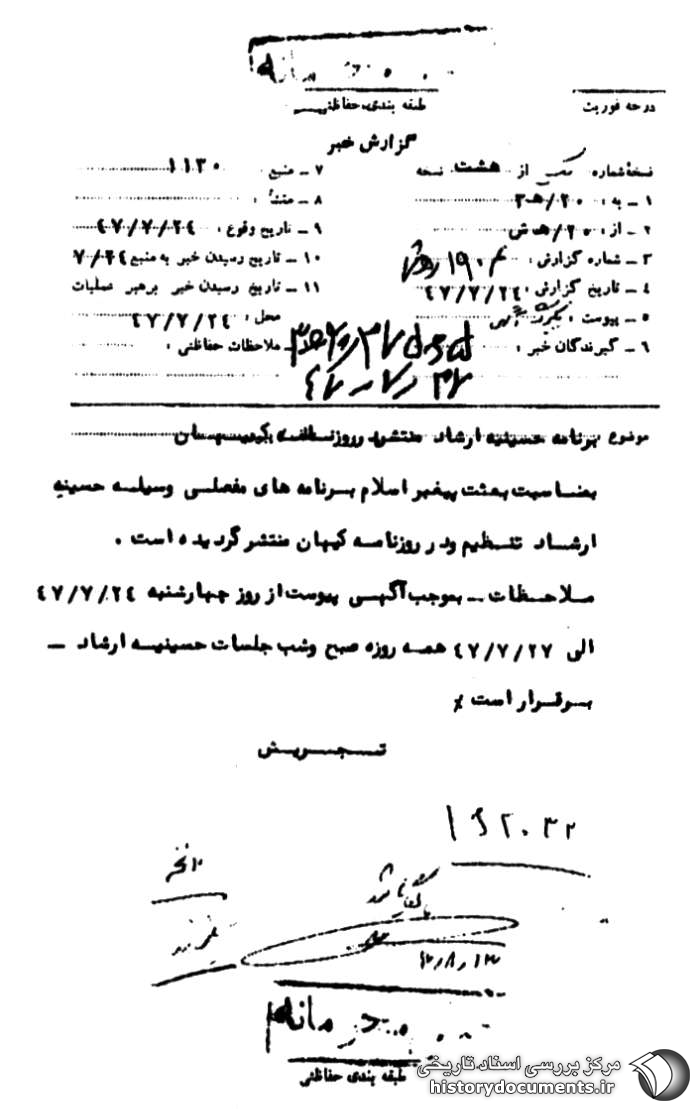 محرمانه
درجه فوریت
طبقه بندی حفاظتی
گزارش خبر
نسخهٔ شماره یک از هشت نسخه
۱ ـ به : ۲۰/ه ۳
۲ ـ از : ۲۰/ه ش
۳ ـ شماره گزارش :
۴ ـ تاریخ گزارش : ۴۷/۷/۲۴
۵ ـ پیوست :
۶ ـ گیرندگان خبر :
۷ ـ منبع : ۱۱۳۰
۸ ـ منشأ :
۹ ـ تاریخ وقوع : ۴۷/۷/۲۴
۱۰ ـ تاریخ رسیدن خبر به منبع ۷/۲۴
۱۱ ـ تاریخ رسیدن خبر برهبر عملیات
محل : ۴۷/۷/۲۴
ملاحظات حفاظتی :
موضوع : برنامه حسینیه ارشاد منتشره روزنامه کیهان
بمناسبت بعثت پیغمبر اسلام برنامه های مفصلی وسیله حسینیه
ارشاد تنظیم ودر روزنامه کیهان منتشر گردیده است .
ملاحظات ـ بموجب آگهی پیوست از روز چهارشنبه ۴۷/۷/۲۴
الی ۴۷/۷/۲۷ همه روزه صبح وشب جلسات حسینیه ارشاد ـ
برقرار است %
تجریش
بایگانی شود
۴۷/۸/۱۳
محرمانه
طبقه بندی حفاظتی
مرکز بررسی اسناد تاریخی
historydocuments.ir